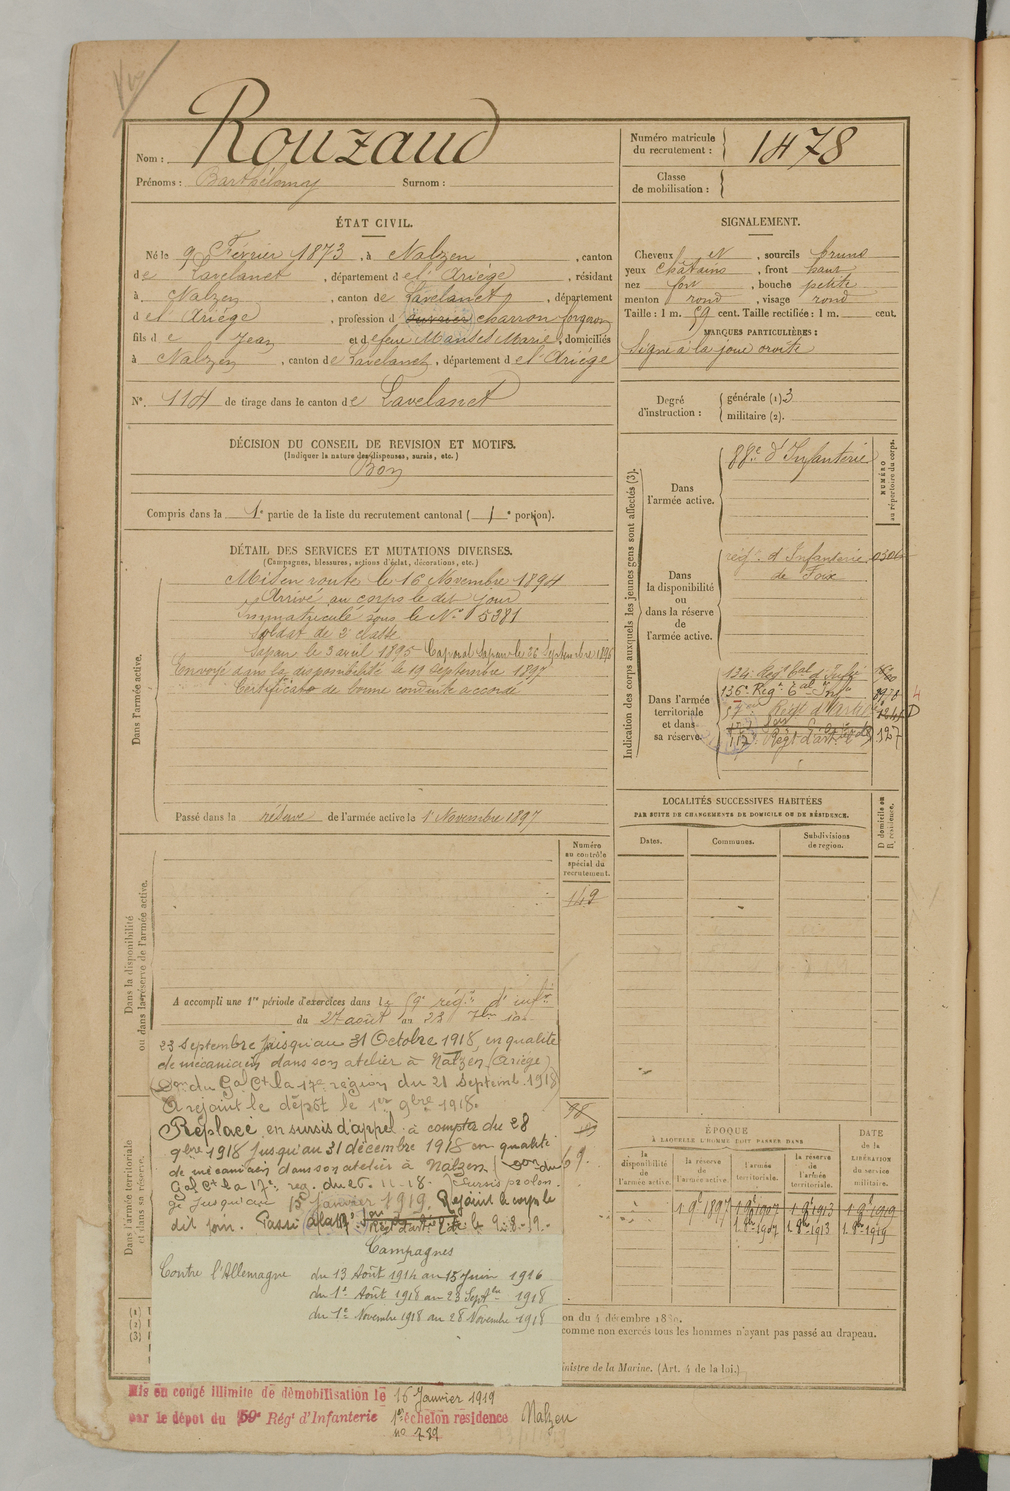 Nom : Rouzaud
Prénoms : Barthélemy Surnom :
Numéro matricule du recrutement : 1478
Classe de mobilisation :
ÉTAT CIVIL.
Né le 9 Février 1873, à Nalzen, canton
de Lavelanet, département de l'Ariège, résidant
à Nalzen, canton de Lavelanet, département
de l'Ariège, profession d charron forgeron
fils de Jean et de feue Manses Marie, domiciliés
à Nalzen, canton de Lavelanet, département de l'Ariège
N°. 114 de tirage dans le canton de Lavelanet
SIGNALEMENT.
Cheveux et, sourcils bruns
yeux châtains, front haut
nez fort, bouche petite
menton rond, visage rond
Taille : 1 m. 59 cent. Taille rectifiée : 1 m. cent.
MARQUES PARTICULIÈRES :
Signe à la joue droite
Degré d'instruction : générale (1) 3
militaire (2).
DÉCISION DU CONSEIL DE REVISION ET MOTIFS.
(Indiquer la nature des dispenses, sursis, etc.)
Bon
Compris dans la 1e partie de la liste du recrutement cantonal (1e portion).
DÉTAIL DES SERVICES ET MUTATIONS DIVERSES.
(Campagnes, blessures, actions d'éclat, décorations, etc.)
Dans l'armée active.
Mis en route le 16 Novembre 1894
Arrivé au corps le dit jour
Immatriculé sous le N° 5381
Soldat de 2e classe
Sapeur le 3 avril 1895 Caporal Sapeur le 26 Septembre 1896
Envoyé dans la disponibilité le 19 Septembre 1897
Certificat de bonne conduite accordé
Passé dans la réserve de l'armée active le 1er Novembre 1897
Indication des corps auxquels les jeunes gens sont affectés (3).
NUMÉRO au répertoire du corps.
Dans l'armée active.
88e d'Infanterie
Dans la disponibilité ou dans la réserve de l'armée active.
régt d'Infanterie
de Foix
Dans l'armée territoriale et dans sa réserve.
136e Régt Tal Infie
LOCALITÉS SUCCESSIVES HABITÉES
PAR SUITE DE CHANGEMENTS DE DOMICILE OU DE RÉSIDENCE.
Dates. Communes. Subdivisions de region. D domicile ou R résidence.
Dans la disponibilité ou dans la réserve de l'armée active.
Numéro au contrôle spécial du recrutement.
149
A accompli une 1re période d'exercices dans le 59e régt d'infie
du 27 août au 23 7bre
23 Septembre jusqu'au 31 Octobre 1918, en qualité
de mécanicien dans son atelier à Nalzen (Ariège)
(Don du Gal Ct la 17e région du 21 Septemb. 1918)
A rejoint le dépôt le 1er 9bre 1918.
Replacé en sursis d'appel à compter du 28
9bre 1918 jusqu'au 31 décembre 1918 en qualité
de mécanicien dans son atelier à Nalzen (Don du
Gal Ct la 17e reg. du 26.11.18.) Sursis prolon-
gé jusqu'au 15 Janvier 1919. Rejoint le corps le
dit jour. Passé
Dans l'armée territoriale et dans sa réserve.
Campagnes
Contre l'Allemagne du 13 Août 1914 au 15 Juin 1916
du 1er Août 1918 au 23 Septbre 1918
du 1er Novembre 1918 au 28 Novembre 1918
ÉPOQUE
À LAQUELLE L'HOMME DOIT PASSER DANS
la disponibilité de l'armée active. la réserve de l'armée active. l'armée territoriale. la réserve de l'armée territoriale.
DATE de la LIBÉRATION du service militaire.
1 9bre 1897 1 9bre 1907 1 9bre 1913 1 9bre 1919
1. 8bre 1907 1. 8bre 1913 1. 8bre 1919
(1)
(2)
(3)
on du 4 décembre 1830.
comme non exercés tous les hommes n'ayant pas passé au drapeau.
inistre de la Marine. (Art. 4 de la loi.)
Mis en congé illimité de démobilisation le 16 Janvier 1919
par le dépôt du 59e Régt d'Infanterie 1er échelon résidence Nalzen
n° 789